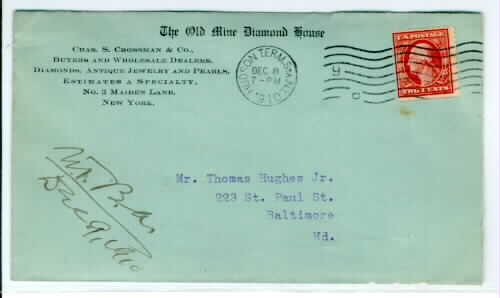 The Old Mine Diamond House
Chas. S. Crossman & Co.,
Buyers and Wholesale Dealers,
Diamonds, Antique Jewelry and Pearls,
Estimates a Specialty,
No. 3 Maiden Lane,
New York.
HUDSON TERM. STA. N.Y.
DEC 8
7-PM
1910
U.S. POSTAGE
TWO CENTS
Mr. Thomas Hughes Jr.
223 St. Paul St.
Baltimore
Md.
Dec 9, 1910